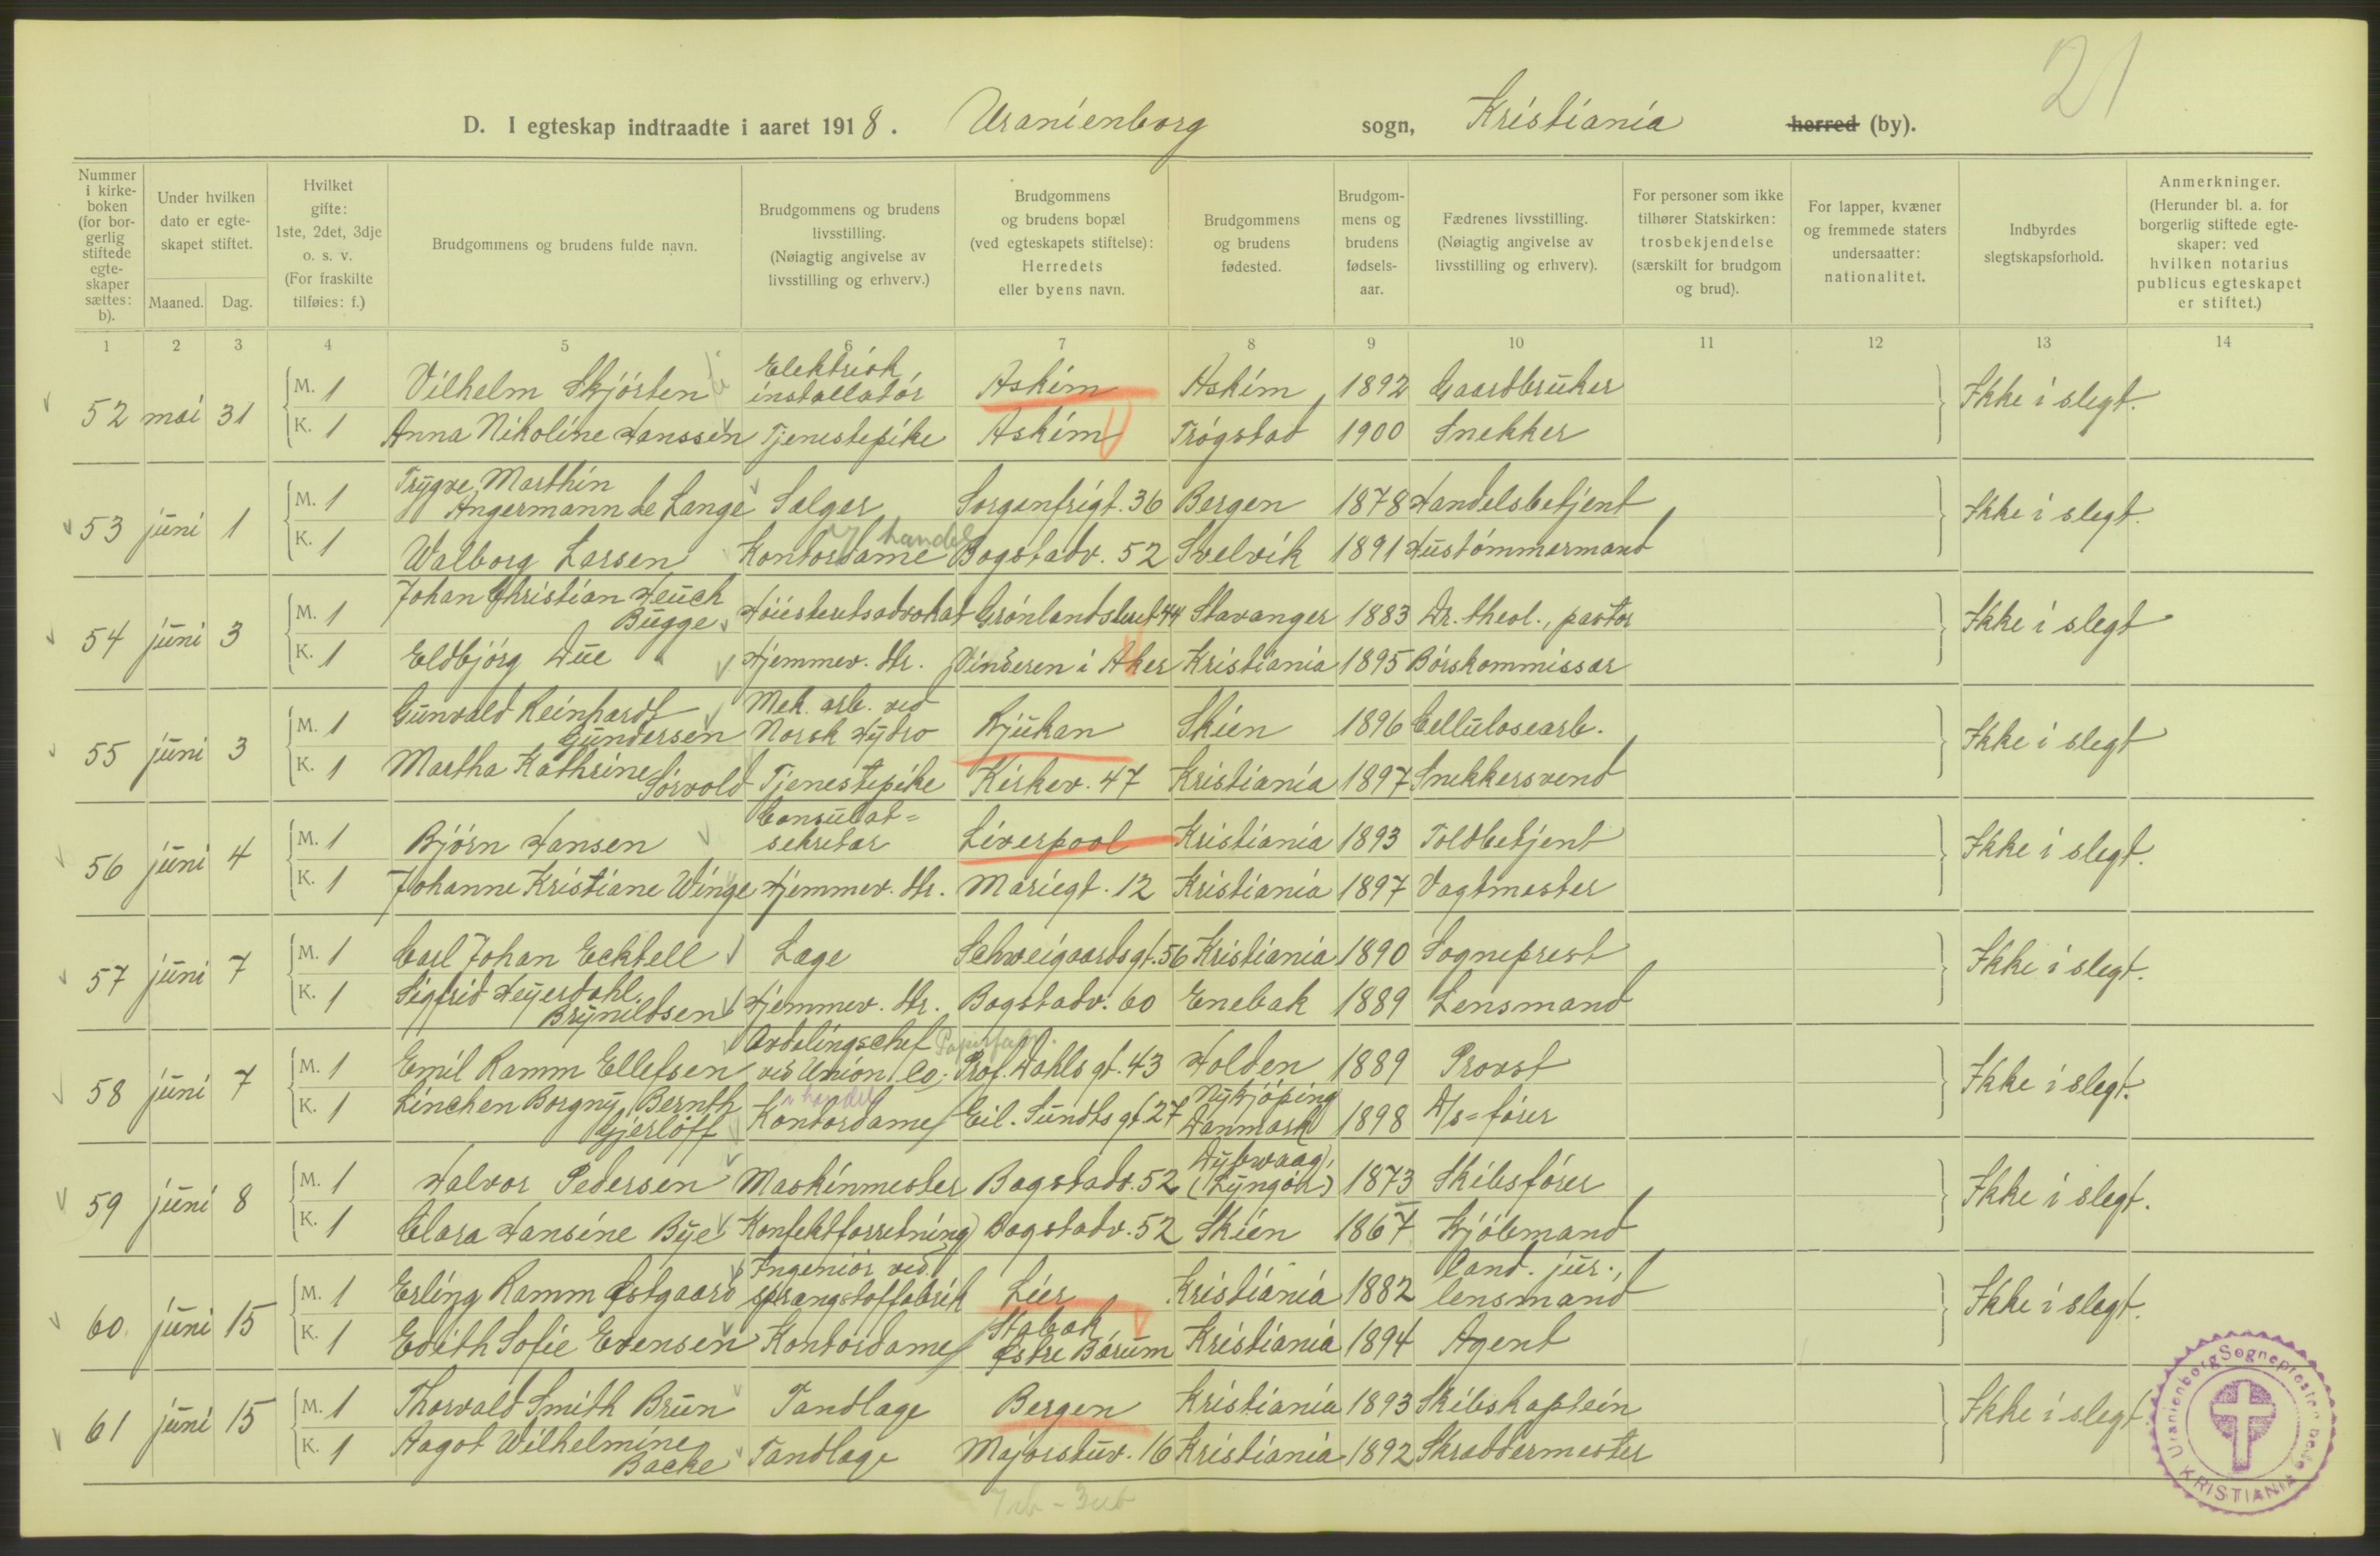 21
D. I egteskap indtraadte i aaret 1918. Uranienborg sogn, Kristiania herred (by).
Nummer i kirke-boken (for bor-gerlig stiftede egte-skaper sættes: b).
Under hvilken dato er egte-skapet stiftet.
Maaned. Dag.
Hvilket gifte: 1ste, 2det, 3dje o. s. v. (For fraskilte tilføies: f.)
Brudgommens og brudens fulde navn.
Brudgommens og brudens livsstilling. (Nøiagtig angivelse av livsstilling og erhverv.)
Brudgommens og brudens bopæl (ved egteskapets stiftelse): Herredets eller byens navn.
Brudgommens og brudens fødested.
Brudgom-mens og brudens fødsels-aar.
Fædrenes livsstilling. (Nøiagtig angivelse av livsstilling og erhverv).
For personer som ikke tilhører Statskirken: trosbekjendelse (særskilt for brudgom og brud).
For lapper, kvæner og fremmede staters undersaatter: nationalitet.
Indbyrdes slegtskapsforhold.
Anmerkninger. (Herunder bl. a. for borgerlig stiftede egte-skaper: ved hvilken notarius publicus egteskapet er stiftet.)
1 2 3 4 5 6 7 8 9 10 11 12 13 14
52 mai 31 M. 1 Vilhelm Skjörten Elektrisk installatör Askim Askim 1892 Gaardbruker Ikke i slegt.
K. 1 Anna Nikoline Hanssen Tjenestepike Askim Trögstad 1900 Snekker
53 juni 1 M. 1 Trygve Marthin Angermann de Lange Sælger Sorgenfrigt. 36 Bergen 1878 Handelsbetjent Ikke i slegt.
K. 1 Walborg Larsen Kontordame handel Bogstadv. 52 Svelvik 1891 Hustömmermand
54 juni 3 M. 1 Johan Christian Heuch Bugge Höiesteretsadvokat Grönlandsleret 44 Stavanger 1883 Dr. theol., pastor Ikke i slegt
K. 1 Eldbjörg Due Hjemmev. dtr. Vinderen i Aker Kristiania 1895 Börskommissær
55 juni 3 M. 1 Gunvald Reinhardt Gundersen Mek. arb. ved Norsk Hydro Rjukan Skien 1896 Cellulosearb. Ikke i slegt
K. 1 Martha Kathrine Sörvold Tjenestepike Kirkev. 47 Kristiania 1897 Snekkersvend
56 juni 4 M. 1 Björn Hansen Consulat=sekretær Liverpool Kristiania 1893 Toldbetjent Ikke i slegt.
K. 1 Johanne Kristiane Winge Hjemmev. dtr. Mariegt. 12 Kristiania 1897 Vagtmester
57 juni 7 M. 1 Carl Johan Ecktell Læge Schweigaardsgt. 56 Kristiania 1890 Sogneprest Ikke i slegt.
K. 1 Sigfrid Heyerdahl Bryneldsen Hjemmev. dtr. Bogstadv. 60 Enebak 1889 Lensmand
58 juni 7 M. 1 Emil Ramm Ellefsen Avdelingschef ved Union Co. Papirfabr. Prof. Dahls gt. 43 Holden 1889 Provst Ikke i slegt.
K. 1 Linchen Borgny Bernth Gjerlöff Kontordame handel Eil. Sundts gt. 27 Nykjöping Danmark 1898 D/s=förer
59 juni 8 M. 1 Halvor Pedersen Maskinmester Bogstadv. 52 Dybwaag, (Lyngör) 1873 Skibsförer Ikke i slegt.
K. 1 Clara Hansine Bye Konfektforretning Bogstadv. 52 Skien 1867 Kjöbmand
60. juni 15 M. 1 Erling Ramm Østgaard Ingeniör ved sprængstoffabrik Lier Kristiania 1882 Cand. jur., lensmand Ikke i slegt.
K. 1 Edith Sofie Evensen Kontordame Stabæk Østre Bærum Kristiania 1894 Agent
61 juni 15 M. 1 Thorvald Smith Brun Tandlæge Bergen Kristiania 1893 Skibskaptein Ikke i slegt.
K. 1 Aagot Wilhelmine Backe Tandlæge Majorstuv. 16 Kristiania 1892 Skræddermester
Uranienborg Sogneprestembede KRISTIANIA